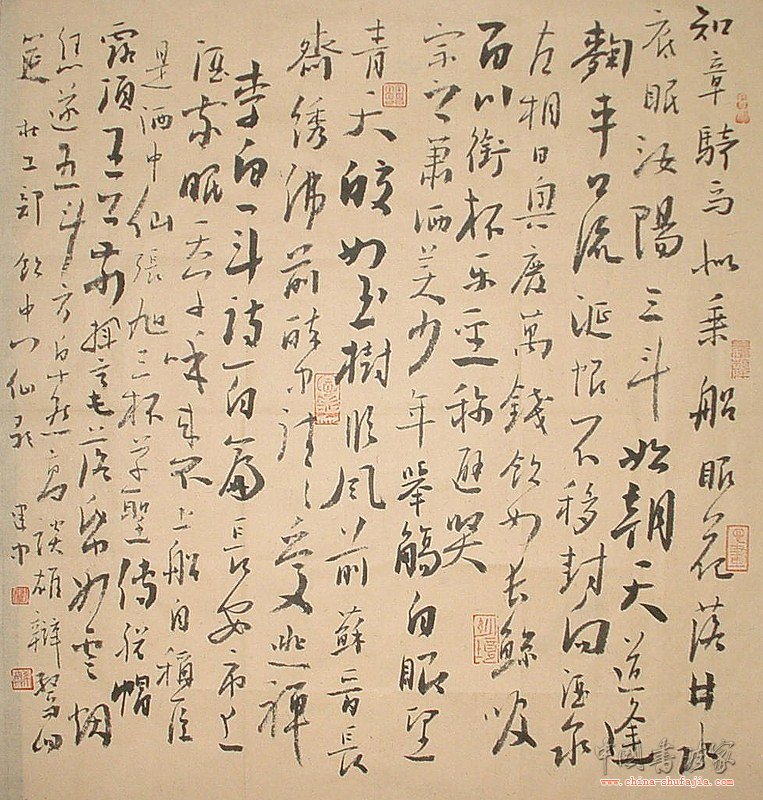 知章騎馬似乘船眼花落井水
底眠汝陽三斗始朝天道逢
麴車口流涎恨不移封向酒泉
左相日興費萬錢飲如長鯨吸
百川銜杯乐聖称避賢
宗之蕭洒美少年舉觴白眼望
青天皎如玉樹临風前蘇晉長
齋绣佛前醉中往往愛逃禪
李白一斗詩百篇長安市上
酒家眠天子呼來不上船自稱臣
是酒中仙張旭三杯草聖傳脱帽
露頂王公前揮毫落紙如雲烟
焦遂五斗方卓然高談雄辯驚四
筵 杜工部飲中八仙歌
中國書法家
www.china-shufajia.com